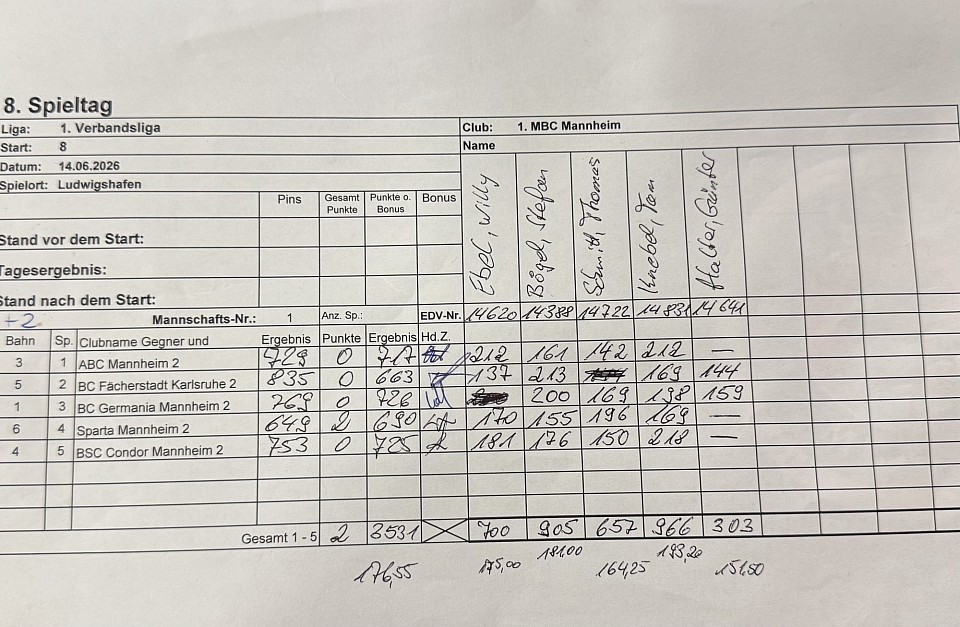 8. Spieltag
Liga: 1. Verbandsliga Club: 1. MBC Mannheim
Start: 8 Name
Datum: 14.06.2026
Spielort: Ludwigshafen
Pins Gesamt Punkte Punkte o. Bonus Bonus
Ebel, Willy
Bögel, Stefan
Schmitt, Thomas
Knebel, Tom
Günter
Stand vor dem Start:
Tagesergebnis:
Stand nach dem Start:
+2 Mannschafts-Nr.: 1 Anz. Sp.: EDV-Nr. 14620 14388 14722 14831 14641
Bahn Sp. Clubname Gegner und Ergebnis Punkte Ergebnis Hd.Z.
3 1 ABC Mannheim 2 729 0 727 212 161 142 212 —
5 2 BC Fächerstadt Karlsruhe 2 835 0 663 137 213 169 144
1 3 BC Germania Mannheim 2 769 0 726 200 169 198 159
6 4 Sparta Mannheim 2 649 2 690 170 155 196 169 —
4 5 BSC Condor Mannheim 2 753 0 725 181 176 150 218 —
Gesamt 1 - 5 2 3531 700 905 657 966 303
176,55 175,00 181,00 164,25 193,20 151,50